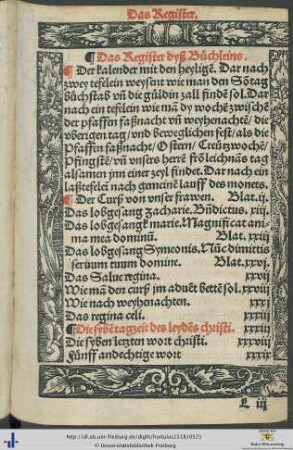 Das Register.
¶ Das Register dyß Büchleins.
¶ Der kalender mit den heylige͂. Dar nach
zwey tefelein weysent wie man den So͂tag
bůchstab vn͂ die güldin zall finde͂ sol. Dar
nach ein tefelein wie ma͂ dy woche͂ zwische͂
der pfaffen faßnacht vn͂ weyhenachte͂/ die
vberigen tag/ vnd beweglichen fest/ als die
Pfaffen faßnacht/ Ostern/ Creützwoche͂/
Pfingste͂/ vn͂ vnsers herre͂ fro͂leichnäs tag
alsamen jnn einer zeyl findet. Dar nach ein
laßtefelei nach gemeine͂ lauff des monets.
¶ Der Curß von vnser frawen. Blat.ij.
Das lobgesang Zacharie. Bn͂dictus. xiij.
Das lobgesang marie. Magnificat ani
ma mea dominu͂. Blat. xxiij
Das lobgesang Symeonis. Nu͂c dimittis
seruum tuum domine. Blat. xxv.
Das Salue regina. xxvij
Wie ma͂ den curß jm aduēt bette͂ sol. xxviij
Wie nach weyhenachten. xxxij
Das regina celi. xxxiij
¶ Die sybe͂ tagzeit des leyde͂s christi.
Die syben letzten wort christi. xxxviij
Fünff andechtige wort xxxix
L iij
http://dl.ub.uni-freiburg.de/diglit/hortulus1518/0525
© Universitätsbibliothek Freiburg
Baden-Württemberg